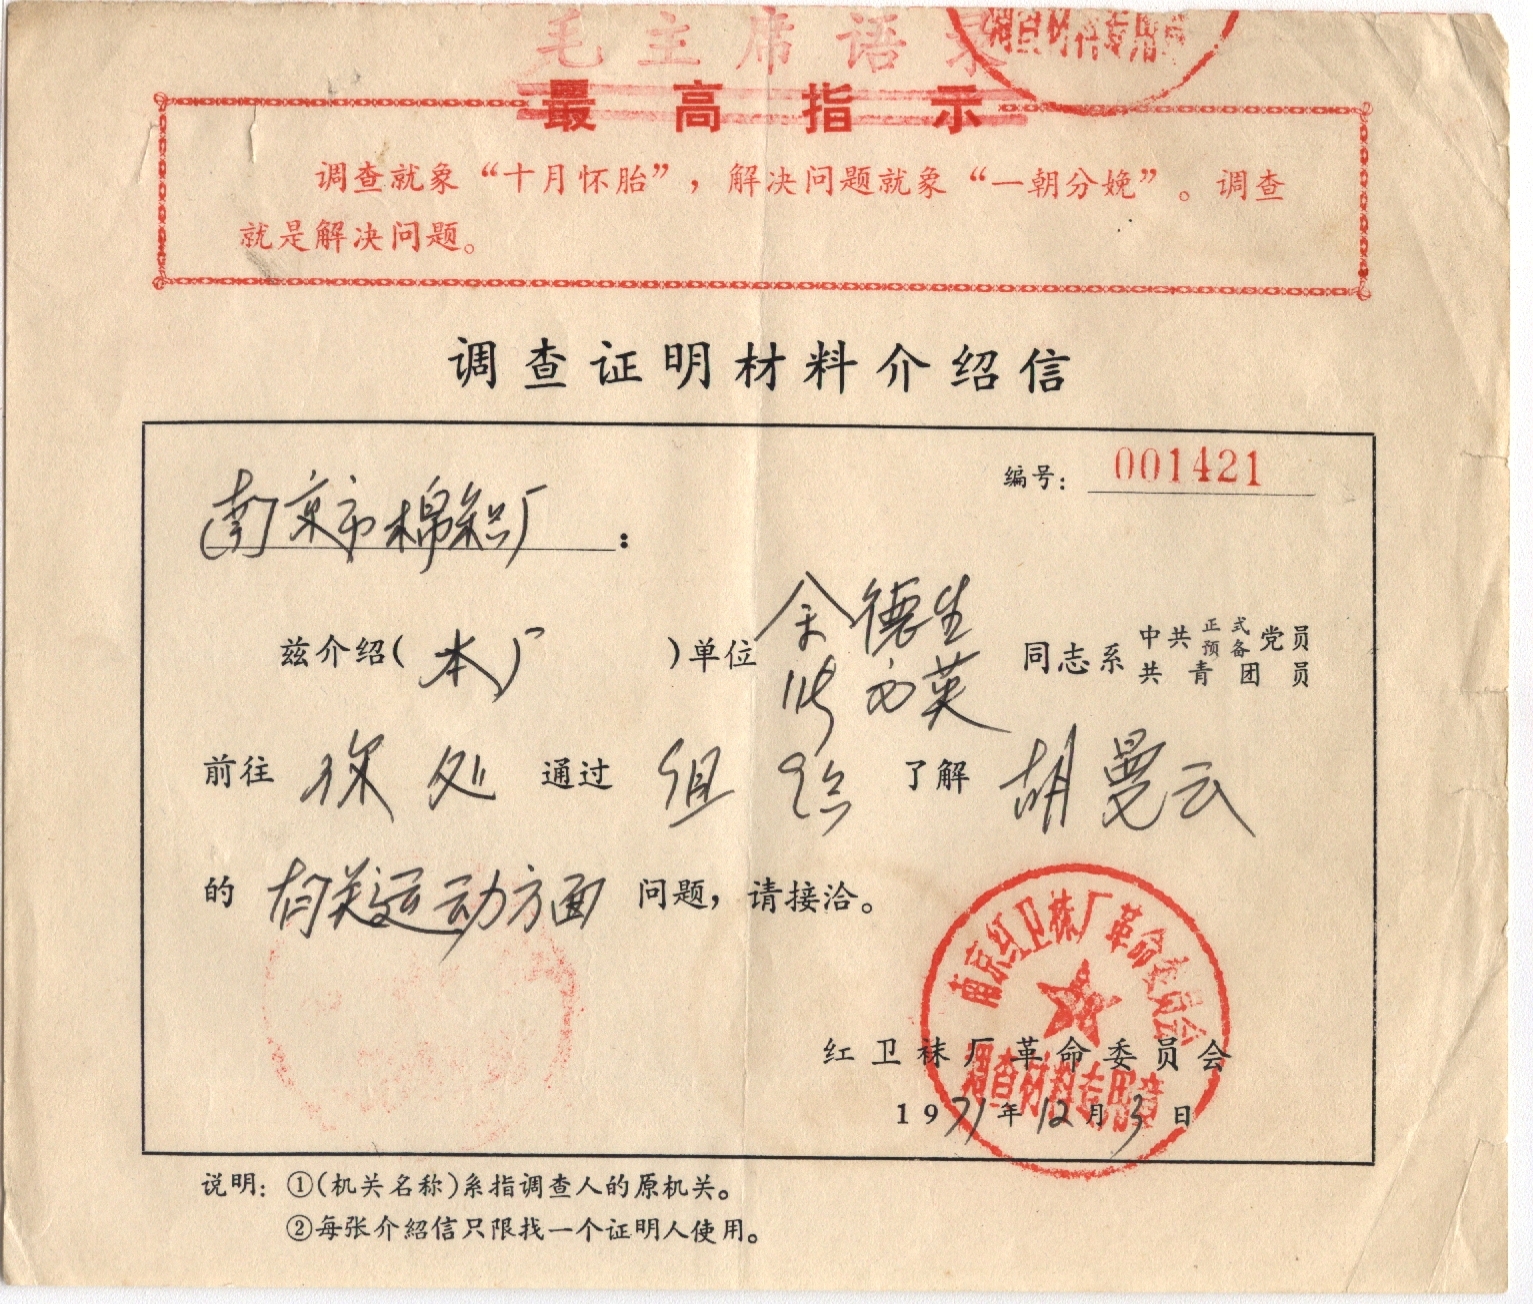 毛主席语录
调查材料专用章
最高指示
调查就象“十月怀胎”，解决问题就象“一朝分娩”。调查
就是解决问题。
调查证明材料介绍信
编号：001421
南京市棉织厂：
兹介绍(本厂)单位余德生 同志系中共正式预备党员共青团员
英
前往你处通过组织了解胡曼云
的有关运动方面问题，请接洽。
南京红卫袜厂革命委员会
红卫袜厂革命委员会
调查材料专用章
1971年12月3日
说明：①(机关名称)系指调查人的原机关。
②每张介绍信只限找一个证明人使用。